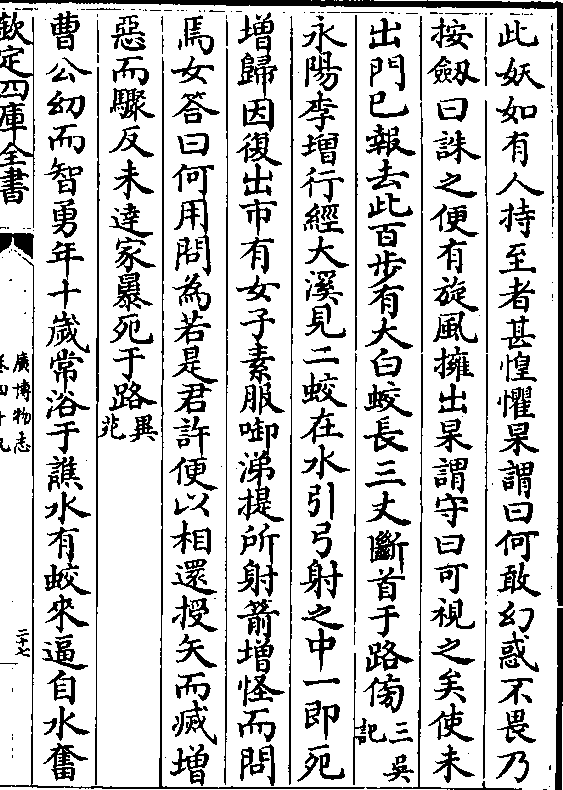 此妖如有人持至者甚惶懼杲謂曰何敢幻惑不畏乃
按劒曰誅之便有旋風擁出杲謂守曰可視之矣使未
出門已報去此百步有大白蛟長三丈斷首于路傍三吳記
永陽李增行經大溪見二蛟在水引弓射之中一即死
增歸因復出市有女子素服啣涕提所射箭增怪而問
焉女答曰何用問為若是君許便以相還授矢而滅增
惡而驟反未達家暴死于路異苑
曹公幼而智勇年十歲常浴于譙水有蛟來逼自水奮
欽定四庫全書
廣博物志
卷四十九
二十七